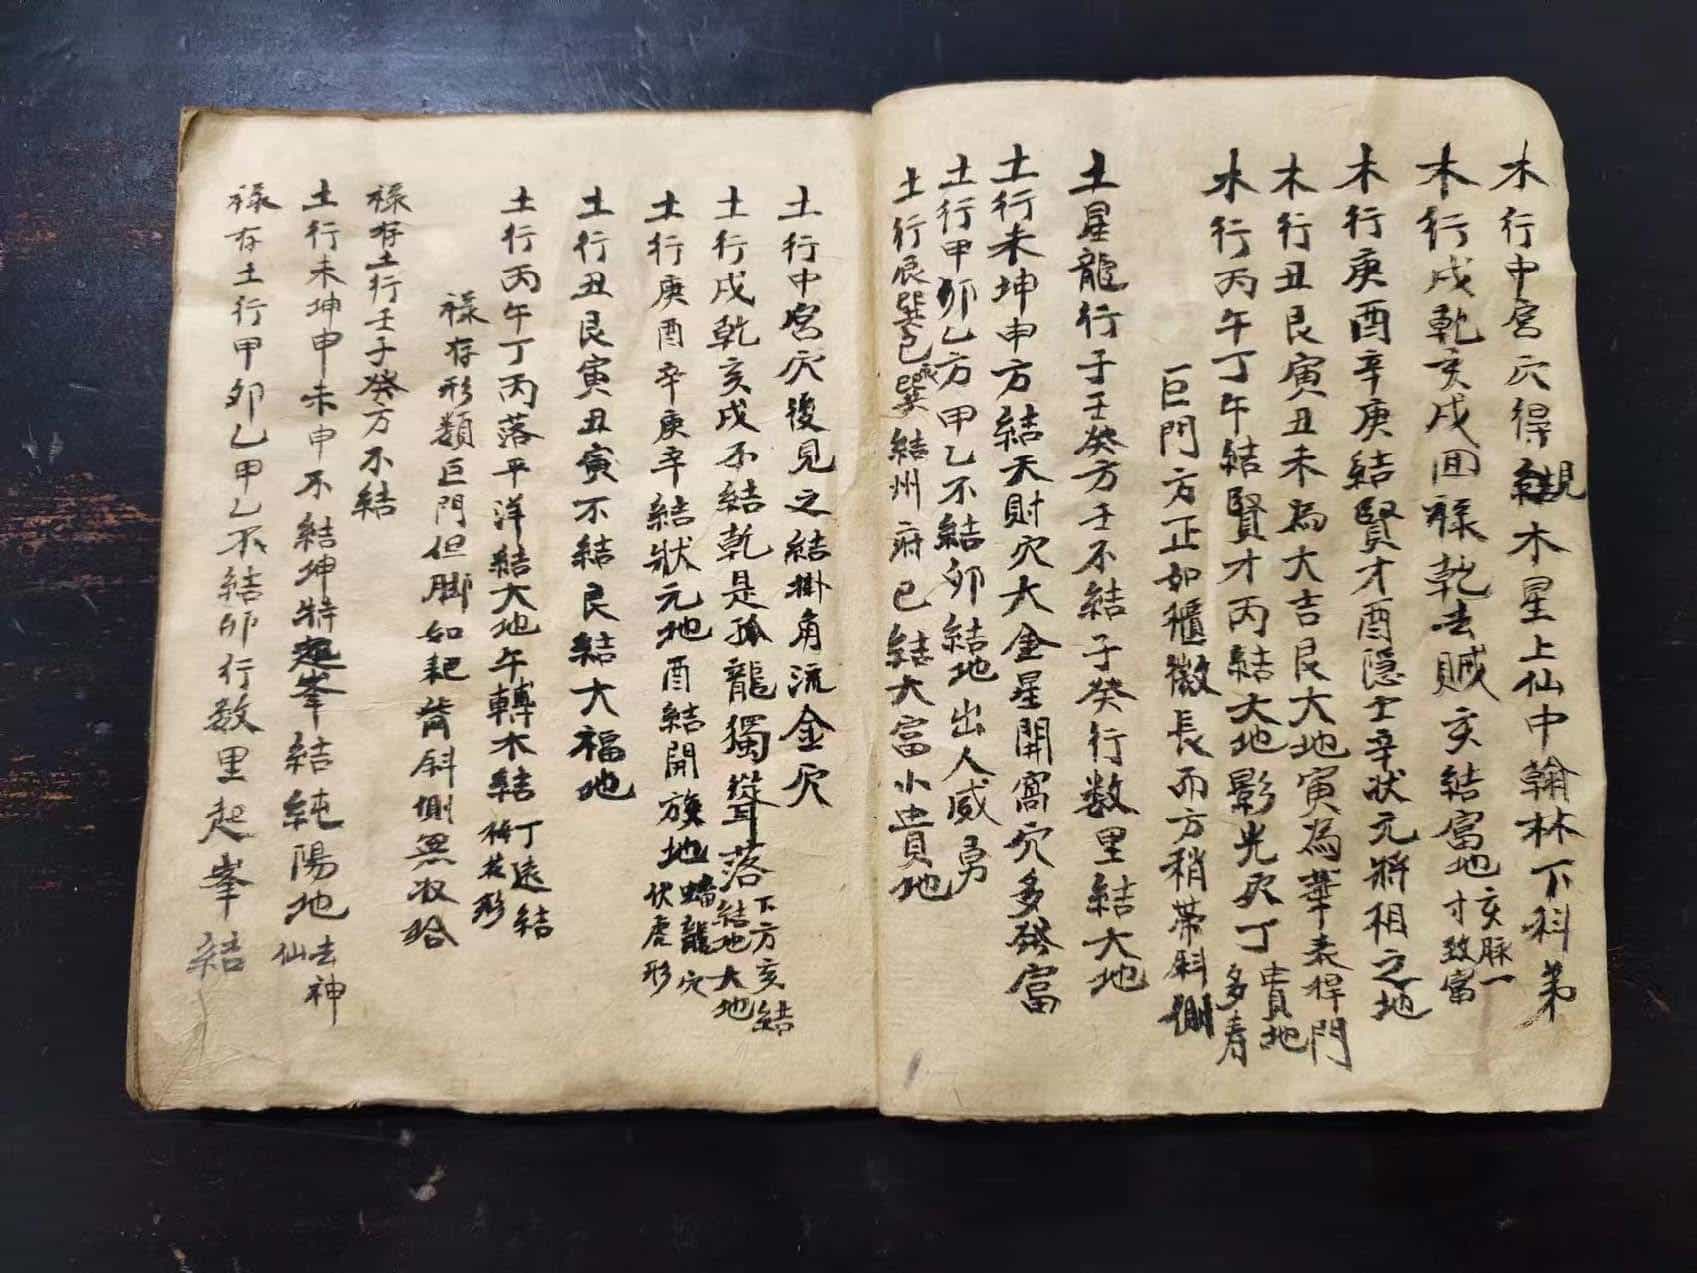 木行中宮穴得結見木星上仙中翰林下科第
木行戌乾亥戌囬祿乾去賊亥結富地亥脉一寸致富
木行庚酉辛庚結賢才酉隱士辛状元將相之地
木行丑艮寅丑未為大吉艮大地寅為華表捍門
木行丙午丁午結賢才丙結大地影光穴丁貴地多寿
巨門方正如櫃微長而方稍带斜側
土星龍行子壬癸方壬不結子癸行数里結大地
土行未坤申方結天財穴大金星開窩穴多發富
土行甲卯乙方甲乙不結卯結地出人威勇
土行辰巽巳辰巽結州府巳結大富小貴地
土行中宮穴後見之結掛角流金穴
土行戌乾亥戌不結乾是孤龍獨聳落下方亥結結地大地
土行庚酉辛庚辛結狀元地酉結開族地蟠龍穴伏虎形
土行丑艮寅丑寅不結艮結大福地
土行丙午丁丙落平洋結大地午轉木結丁遠結梅花形
祿存形類巨門但脚如耙背斜側無收拾
祿存土行壬子癸方不結
土行未坤申未申不結坤特起峯結純陽地去神仙
祿存土行甲卯乙甲乙不結卯行数里起峯結